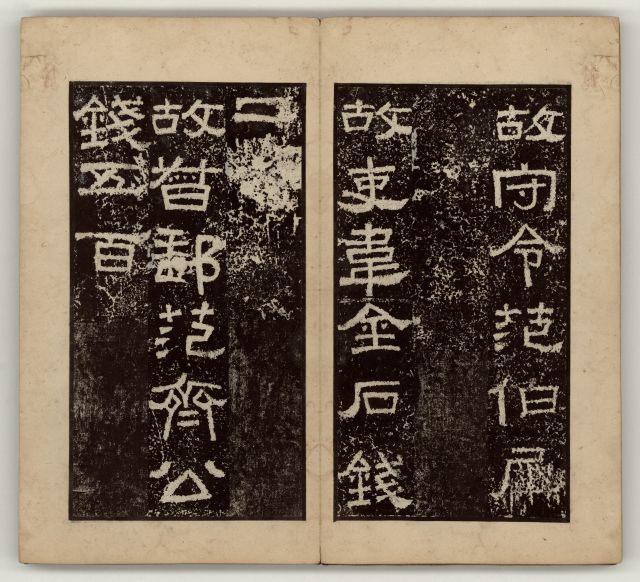 故守令范伯犀
故吏韋金石錢
二
故督郵范齊公
錢五百